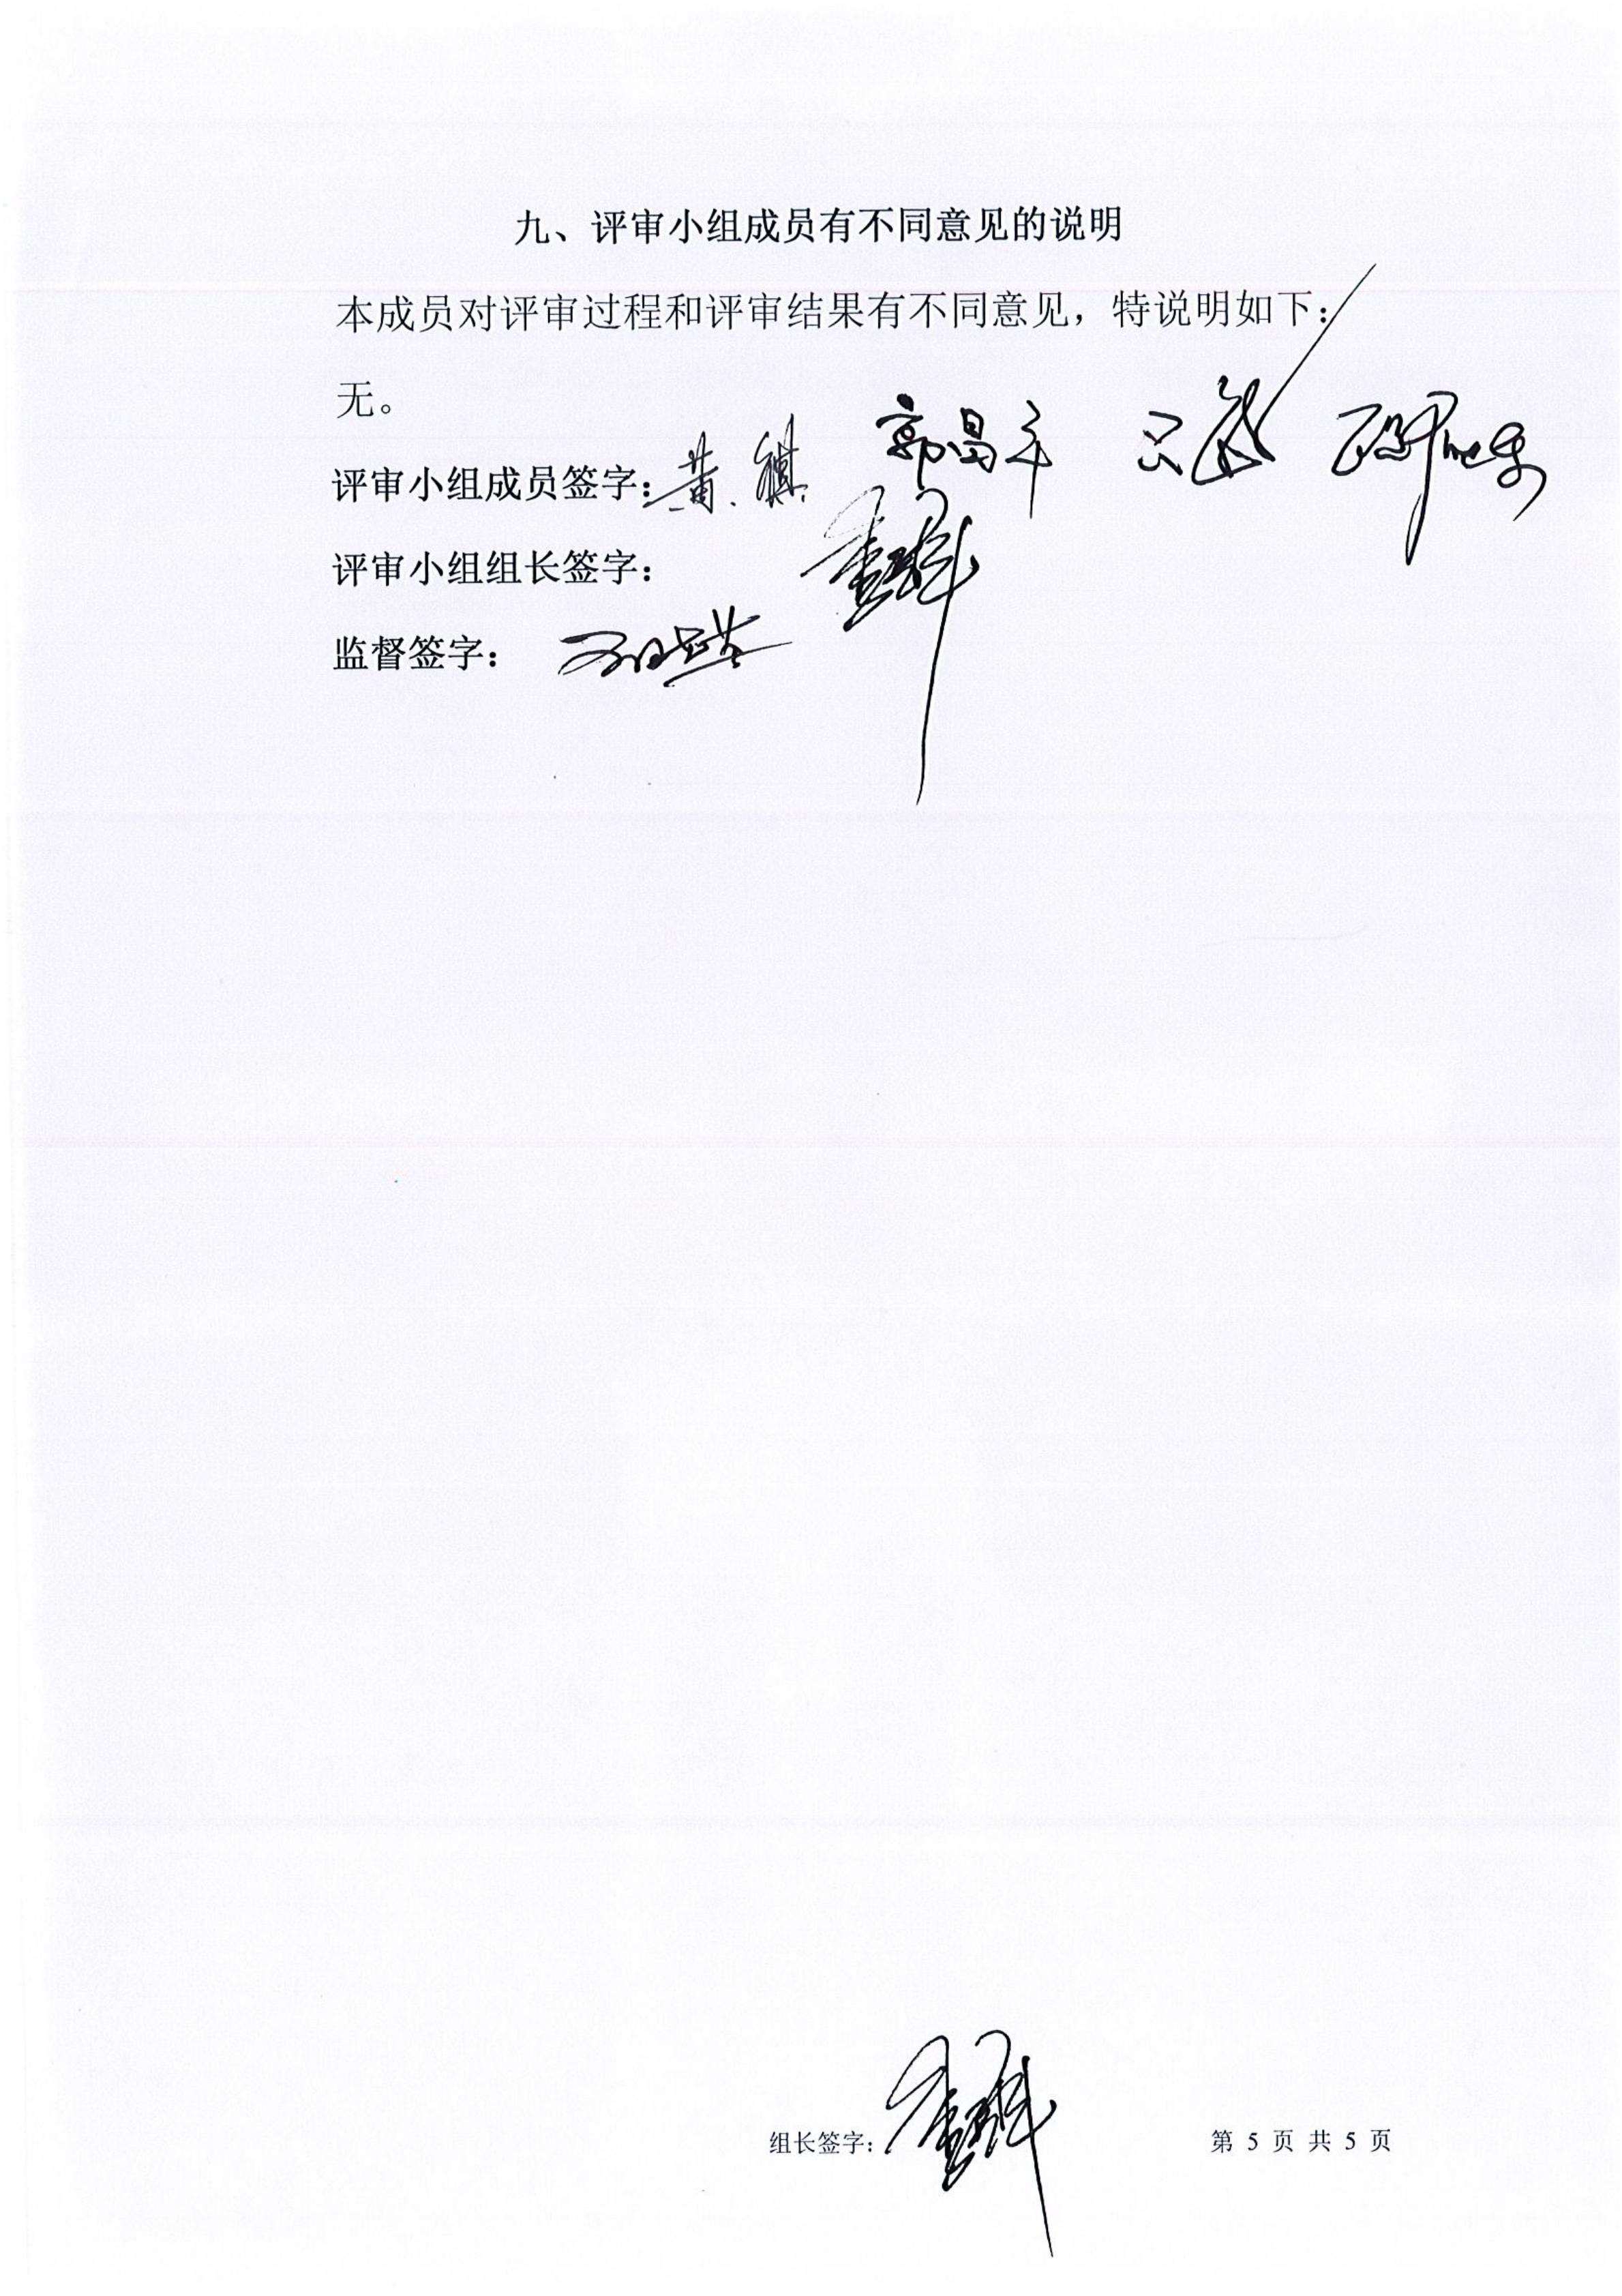 九、评审小组成员有不同意见的说明
本成员对评审过程和评审结果有不同意见，特说明如下：
无。
评审小组成员签字：黄 祺 郭昌年
评审小组组长签字：
监督签字：
组长签字：
第 5 页 共 5 页